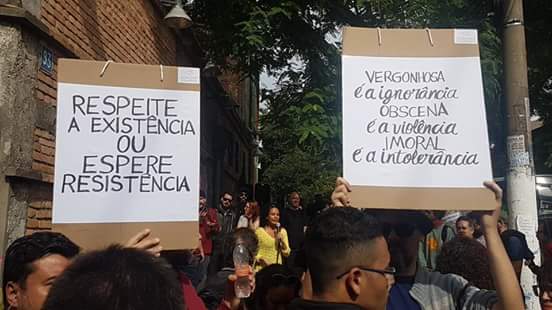 RESPEITE
A EXISTÊNCIA
OU
ESPERE
RESISTÊNCIA
VERGONHOSA
é a ignorância
OBSCENA
é a violência
IMORAL
é a intolerância